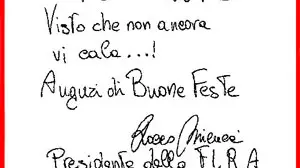 Visto che non ancora
vi cala...!
Auguri di Buone Feste
Presidente della F.I.R.A.